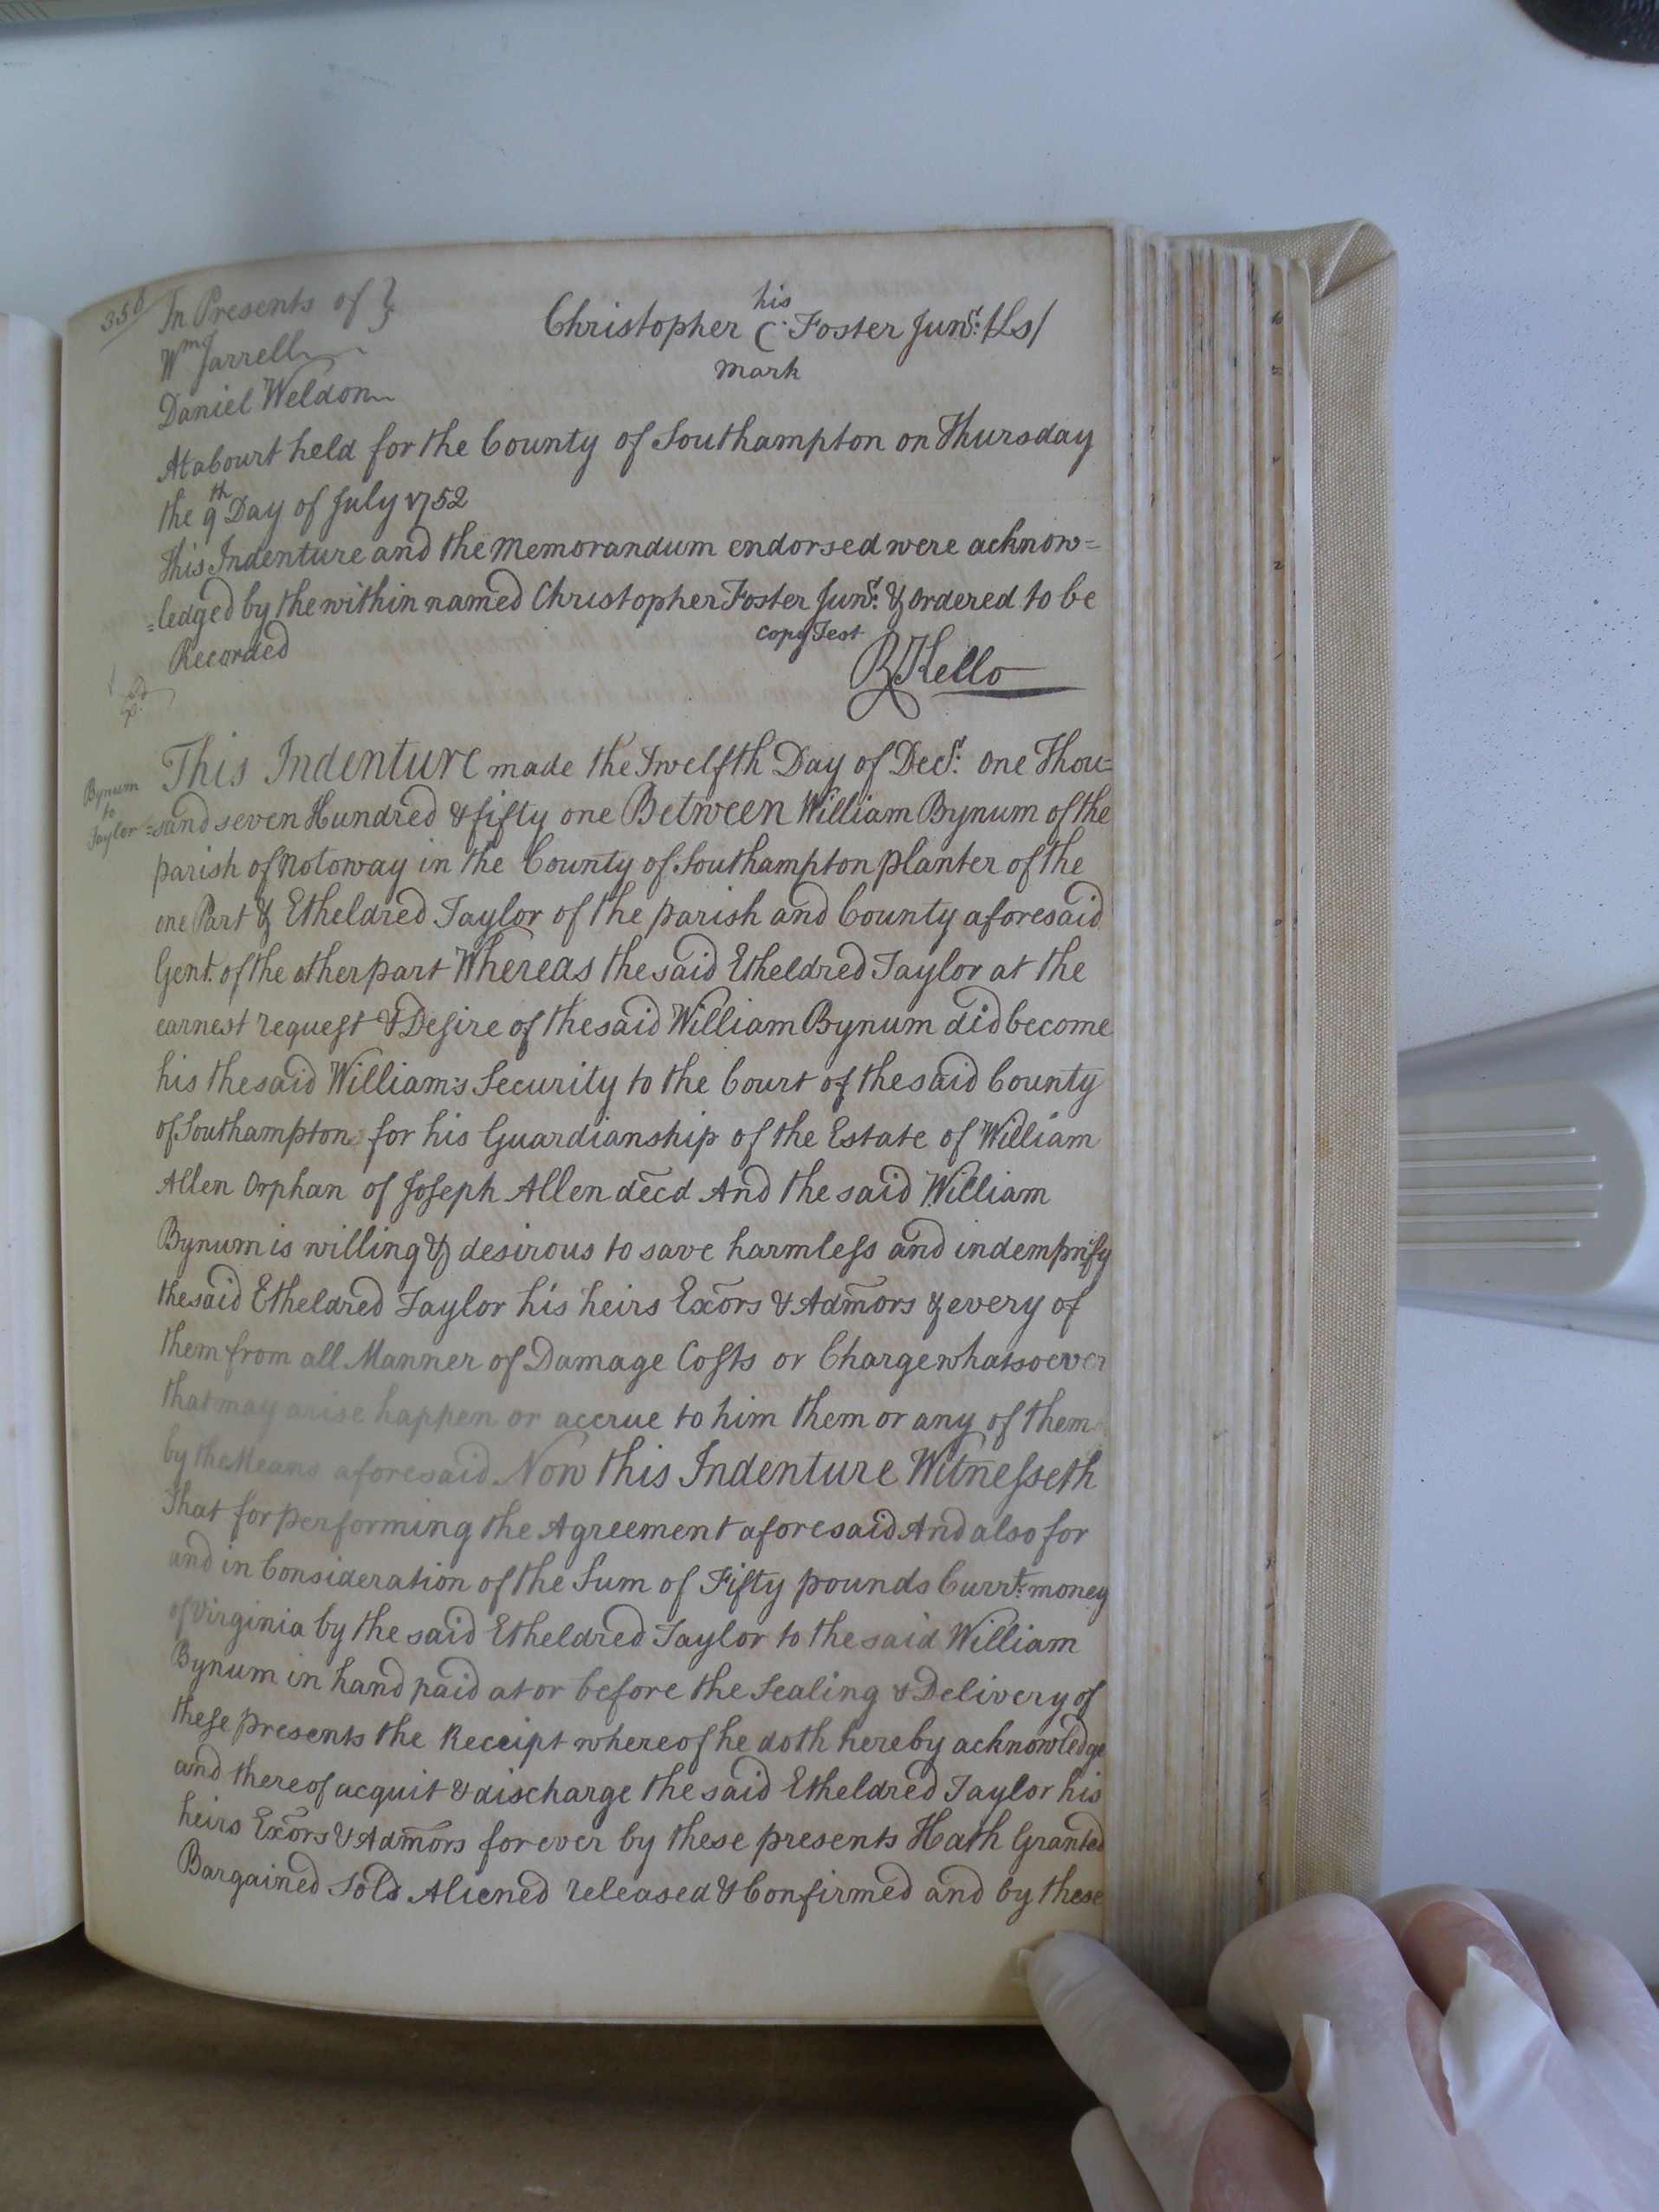 356
In Presents of }
Wm Jarrell
Daniel Weldon
his
Christopher C Foster Junr. /Ls/
mark
At a Court held for the County of Southampton on Thursday
the 9th Day of July 1752
This Indenture and the Memorandum endorsed were acknow=
=ledged by the within named Christopher Foster Junr. & Ordered to be
Recorded
Copy Test
R Kello
Bynum
to
Taylor
This Indenture made the Twelfth Day of Decr. one Thou=
=sand seven Hundred & fifty one Between William Bynum of the
parish of Notoway in the County of Southampton planter of the
one Part & Etheldred Taylor of the parish and County aforesaid
Gent. of the other part Whereas the said Etheldred Taylor at the
earnest request & Desire of the said William Bynum did become
his the said William's Security to the Court of the said County
of Southampton for his Guardianship of the Estate of William
Allen Orphan of Joseph Allen decd And the said William
Bynum is willing & desirous to save harmless and indempnify
the said Etheldred Taylor his heirs Exors & Admors & every of
them from all Manner of Damage Costs or Charge whatsoever
that may arise happen or accrue to him them or any of them
by the Means aforesaid Now this Indenture Witnesseth
That for performing the Agreement aforesaid And also for
and in Consideration of the Sum of Fifty pounds Currt. money
of Virginia by the said Etheldred Taylor to the said William
Bynum in hand paid at or before the Sealing & Delivery of
these presents the Receipt whereof he doth hereby acknowledge
and thereof acquit & discharge the said Etheldred Taylor his
heirs Exors & Admors forever by these presents Hath Granted
Bargained Sold Aliened released & Confirmed and by these